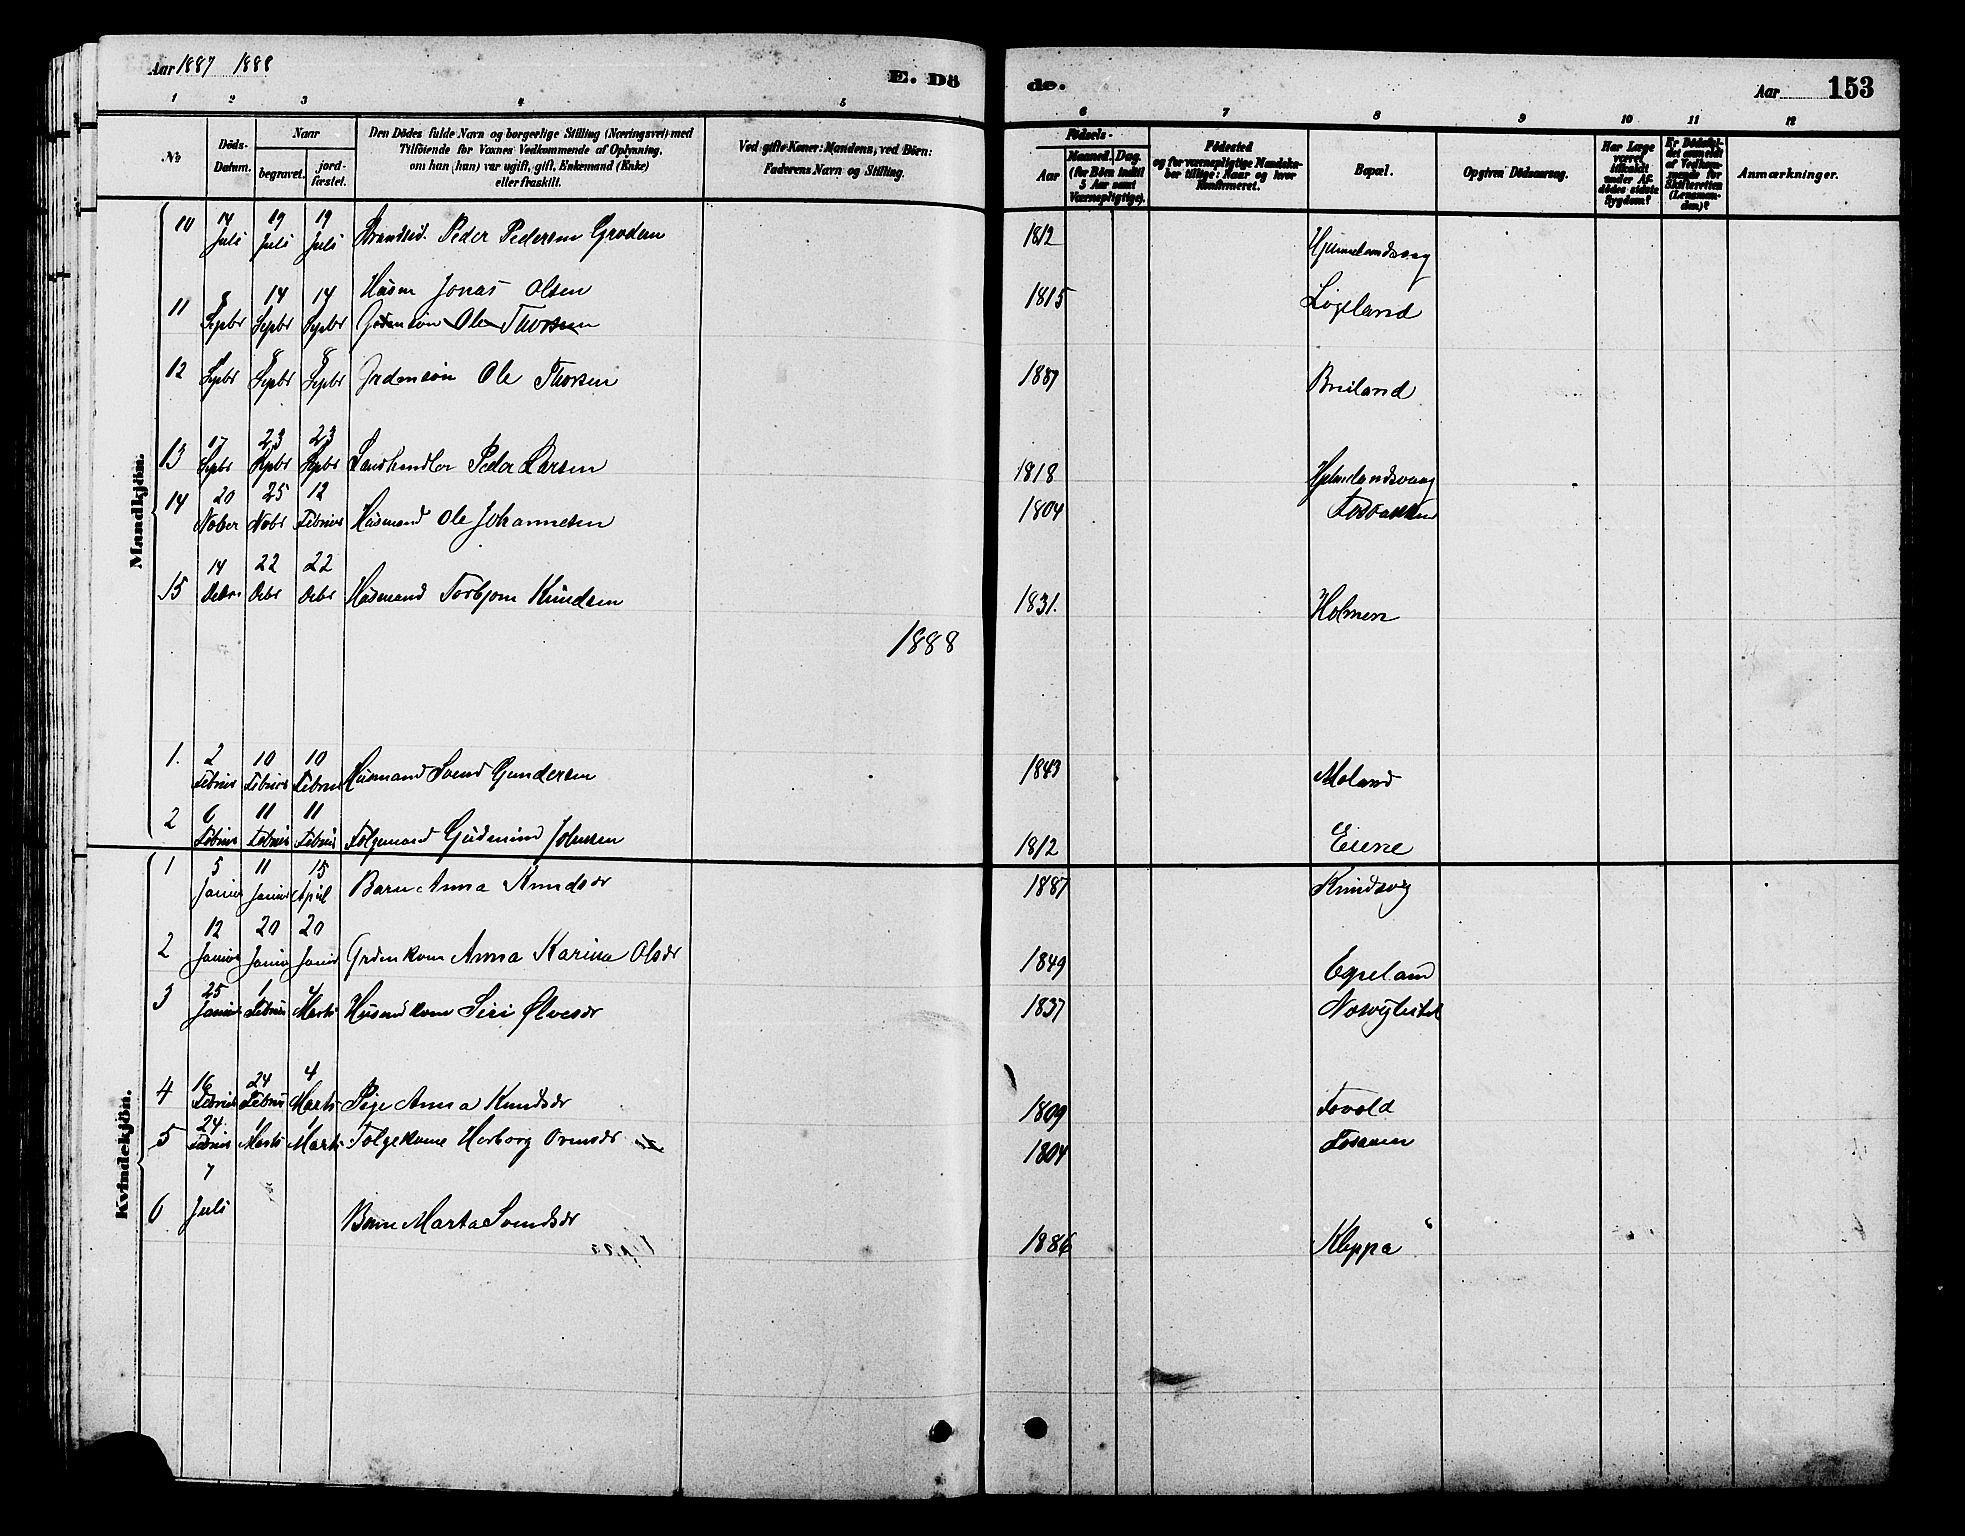 Aar 1887 1888
E. Dö
de.
Aar 153
1 2 3 4 5 6 7 8 9 10 11 12
No
Döds-Datum.
Naar
begravet.
jord-fæstet.
Den Dödes fulde Navn og borgerlige Stilling (Næringsvei) med
Tilföiende for Voxnes Vedkommende af Oplysning,
om han (hun) var ugift, gift, Enkemand (Enke)
eller fraskilt.
Ved gifte Koner: Mandens, ved Börn:
Faderens Navn og Stilling.
Födsels-
Aar
Maaned. Dag.
(for Börn indtil
5 Aar samt
Værnepligtige).
Födested
og for værnepligtige Mandska-
ber tillige: Naar og hvor
konfirmeret.
Bopæl.
Opgiven Dödsaarsag.
Har Læge
været
tilkaldt
under Af-
dödes sidste
Sygdom?
Er Dödsfal-
det anmeldt
af Vedkom-
mende for
Skifteretten
(Lensman-
den)?
Anmærkninger.
Mandkjön.
10 14 Juli 19 Juli 19 Juli Strandsid. Peder Pedersen Groden 1812 Hjelmelandsvag
11 8 Sepbr 14 Sepbr 14 Sepbr Husm Jonas Olsen 1815
Ole Thorsen
12 Sepbr 8 Sepbr 8 Sepbr Grdmsön Ole Thorsen 1887 Breiland
13 17 Sepbr 23 Sepbr 23 Sepbr Landhandler Peder Larsen 1818 Hjelmelandsvaag
14 20 Nober 25 Nobr 12 Februar Husmand Ole Johannesen 1804
15 14 Decbr 22 Decbr 22 Decbr Husmand Torbjorn Knudsen 1831. Holmen
1888
1. 2 Februar 10 Februar 10 Februar Husmand Svend Gundersen 1843 Moland
2 6 Februar 11 Februar 11 Februar Folgemand Gudmund Johnsen 1812 Eiene
Kvindekjön.
1 5 Januar 11 Januar 15 April Barn Anna Knudsdr 1887 Knudsvig
2 12 Januar 20 Januar 20 Januar Grdmkone Anna Karina Olsdr 1849 Egeland
3 25 Januar 1 Februar 4 Marts Husmdkone Siri Ølvesdr 1837
4 16 Februar 24 Februar 4 Marts Pige Anna Knudsdr 1809
5 24 Februar 1 Marts 1 Marts Folgekone Herborg Ormsdr 1804
6 7 Juli Barn Marta Svendsdr 1886 Kleppa